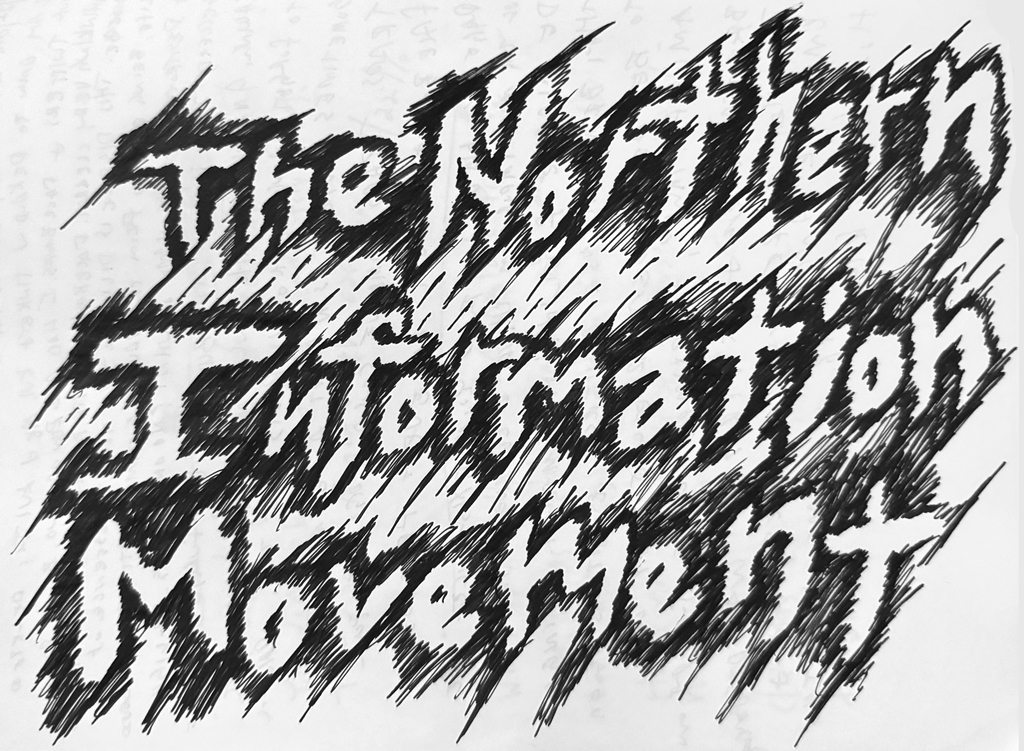 The Northern
Information
Movement